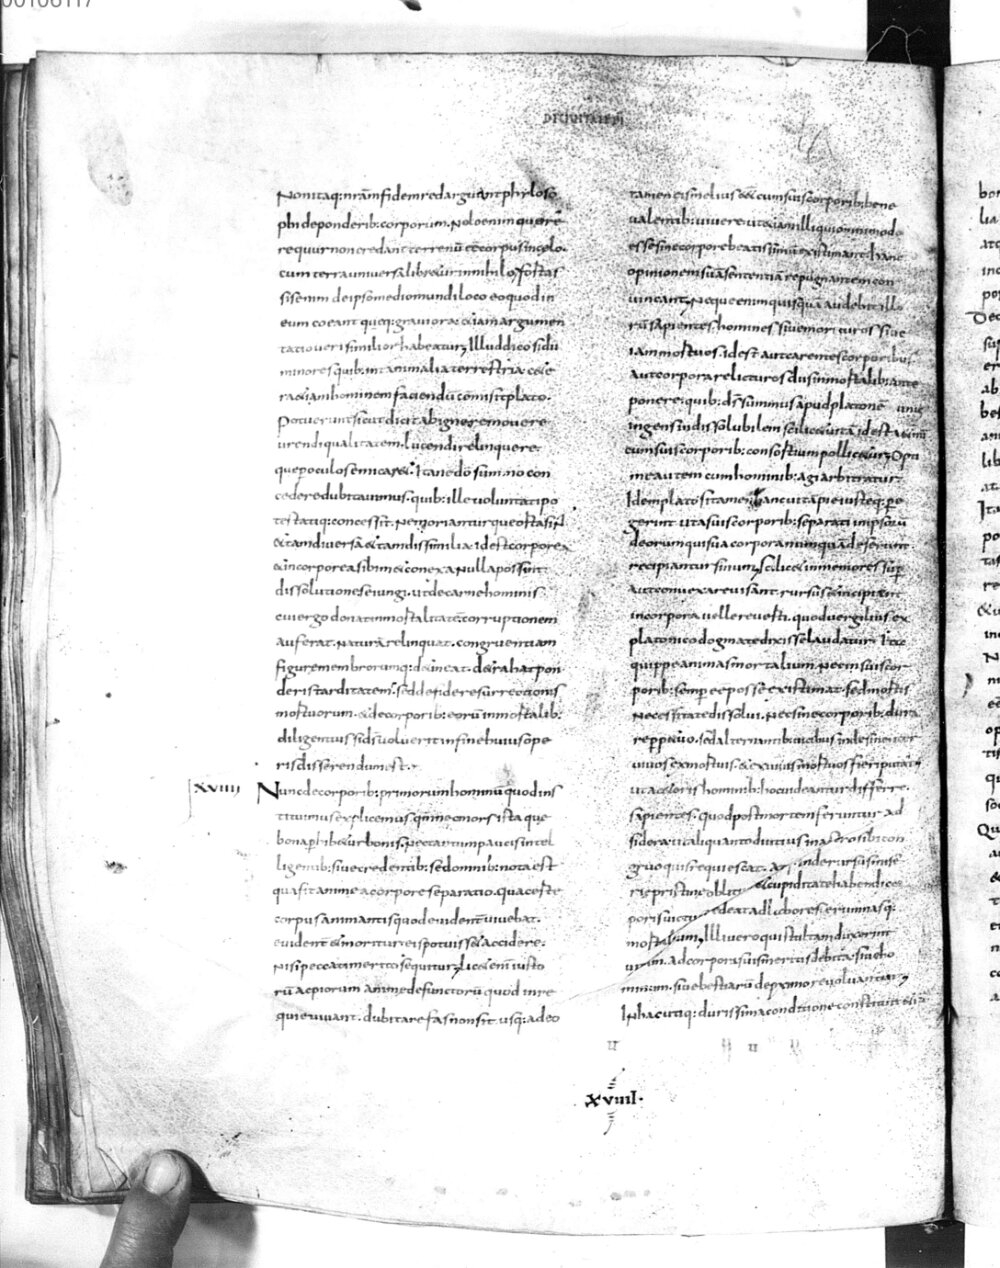 DECIVITATE DI
Non itaq: nr̄am fidem redarguunt phyloso
phi de ponderib: corporum. Nolo enim querere
requur non credant terrenū ee corpus in celo.
cum terra universa libretur in nihilo. fortas
sis enim de ipso mediomundi loco eo quod in
eum coeant queq: graviora. etiam argumen
tatio veri similior habeatur; Illud dico si dii
minores quib: int animalia terrestria cete
ra etiam hominem faciendū commisit plato.
Potuerunt sicut dicit ab igne removere
urendi qualitatem. lucendi relinquere
que p oculos emicaret. Itane dō sūmo con
cedere dubitavimus. quib: ille voluntati po
testatiq: concessit. Ne moriantur que orta sūt
& tam diversa & tam dissimilia. idest corporea
& incorporea sibimet conexa nulla possint
dissolutione seiungi. ut de carne hominis
cui ergo donat inmortalitatē. corruptionem
auferat. naturā relinquat. congruentiam
figure membrorumq: detineat. detrahat pon
deris tarditatem. sed de fide resurrectionis
mortuorum. & de corporib: eorū inmortalib:
diligentius si dš voluerit in fine huius ope
ris disserendum est.
XVIIII Nunc de corporib: primorum hominū quod ins
tituimus explicemus. qm̄ nec mors ista que
bona phibetur bonis. nec tantum paucis intel
ligentib: sive credentib: sed omnib: nota est
qua fit anime a corpore separatio. qua certe
corpus animantis quod evidentē vivebat.
evidentē emoritur eis potuisset accidere.
Nisi peccati meritū sequitur; Licet enī iusto
rū ac piorum anime defunctorū quod in re
quie vivant. dubitare fas non sit. usq: adeo
tamen eis melius eet cum suis corporib: bene
valentib: vivere. ut etiam illi qui omnimodo
esse sine corpore beatissimū existimant. hanc
opinionem suā sententiā repugnantem con
vincant; Neque enim quisquā audebit illo
rū sapientes homines sive morituros sive
iam mortuos. idest aut carentes corporibus
aut corpora relicturos diis inmortalib: ante
ponere. quib: dš summus apud platonē
ingens indissolubilem scilicet vitā idest
cum suis corporib: consortium pollicetur; Opti
me autem cum hominib: agi arbitratur
Idem plato si tamen hanc vitā pie iusteq: pe
gerint ut a suis corporib: separati in ipsorū
deorum qui sua corpora numquā deserunt
recipiantur sinum; Scilicet inmemores sup
aut convexa revisant. rursus & incipiant
in corpora velle reverti. quod vergilius ex
platonico dogmate dixisse laudatur. Ita
quippe animas mortalium. nec in suis cor
porib: semp ee posse existimat. sed mortis
necessitate dissolvi. nec sine corporib: dura
re ppetuo. sed alternantib: vicibus indesinenter
vivos ex mortuis. & ex vivis mortuos fieri putat
ut a ceteris hominib: hoc videantur differre
sapientes. quod post mortem feruntur ad
sidera. ut aliquanto diutius in astro sibi con
gruo quisq requiescat. inde rursus
pristine oblitus & cupiditate habendi cor
poris victus redeat ad labores. erumnasq:
mortalium; Illi vero qui stultam duxerint
vitam. ad corpora suis meritis debita. sive ho
minum. sive bestiarū de pximo revolvantur;
In hac itaq: durissima conditione constituit
XVIIII.